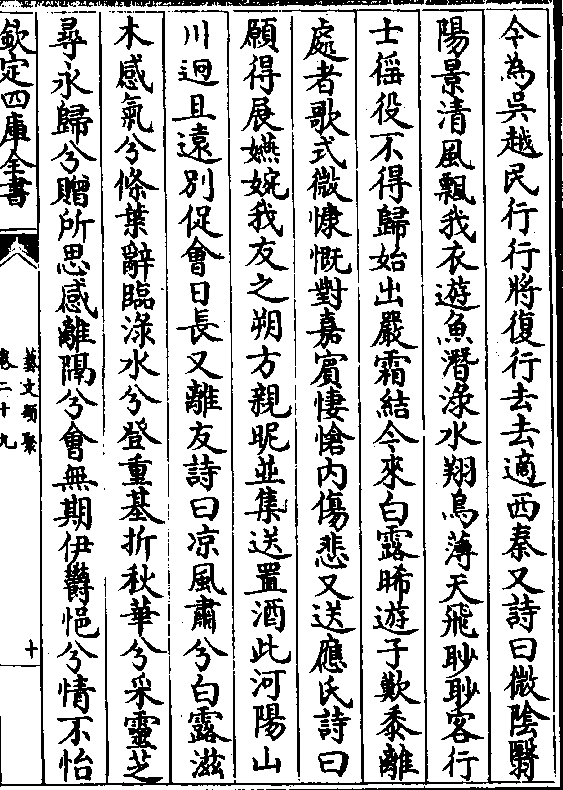 今為吳越民行行將復行去去適西秦又詩曰微隂翳
陽景清風飄我衣遊魚潛淥水翔鳥薄天飛眇眇客行
士徭役不得歸始出嚴霜結今來白露晞遊子歎黍離
處者歌式微慷慨對嘉賓悽愴内傷悲又送應氏詩曰
願得展嬿婉我友之朔方親昵並集送置酒此河陽山
川逈且遠别促會日長又離友詩曰凉風肅兮白露滋
木感氣兮條葉辭臨淥水兮登重基折秋華兮采靈芝
尋永歸兮贈所思感離隔兮會無期伊鬱悒兮情不怡
欽定四庫全書
藝文類聚
卷二十九
十